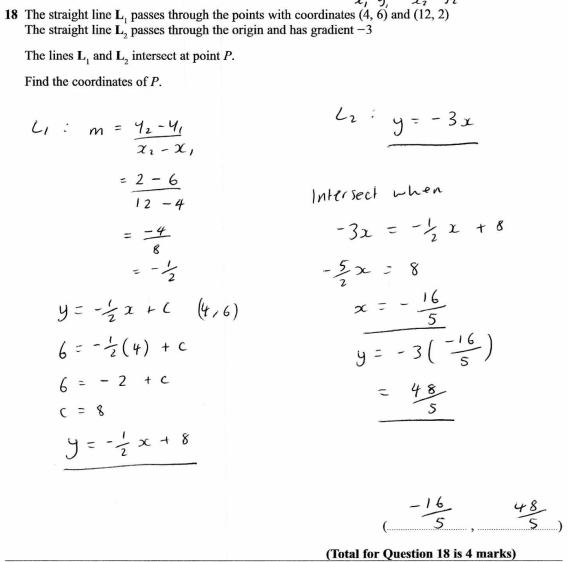 x₁ y₁ x₂ y₂
18 The straight line L₁ passes through the points with coordinates (4, 6) and (12, 2)
The straight line L₂ passes through the origin and has gradient −3
The lines L₁ and L₂ intersect at point P.
Find the coordinates of P.
L₁ : m = (y₂ − y₁)/(x₂ − x₁)
= (2 − 6)/(12 − 4)
= −4/8
= −1/2
y = −1/2 x + c (4, 6)
6 = −1/2 (4) + c
6 = − 2 + c
c = 8
y = −1/2 x + 8
L₂ : y = − 3x
Intersect when
−3x = −1/2 x + 8
−5/2 x = 8
x = − 16/5
y = − 3(−16/5)
= 48/5
(−16/5 , 48/5)
(Total for Question 18 is 4 marks)